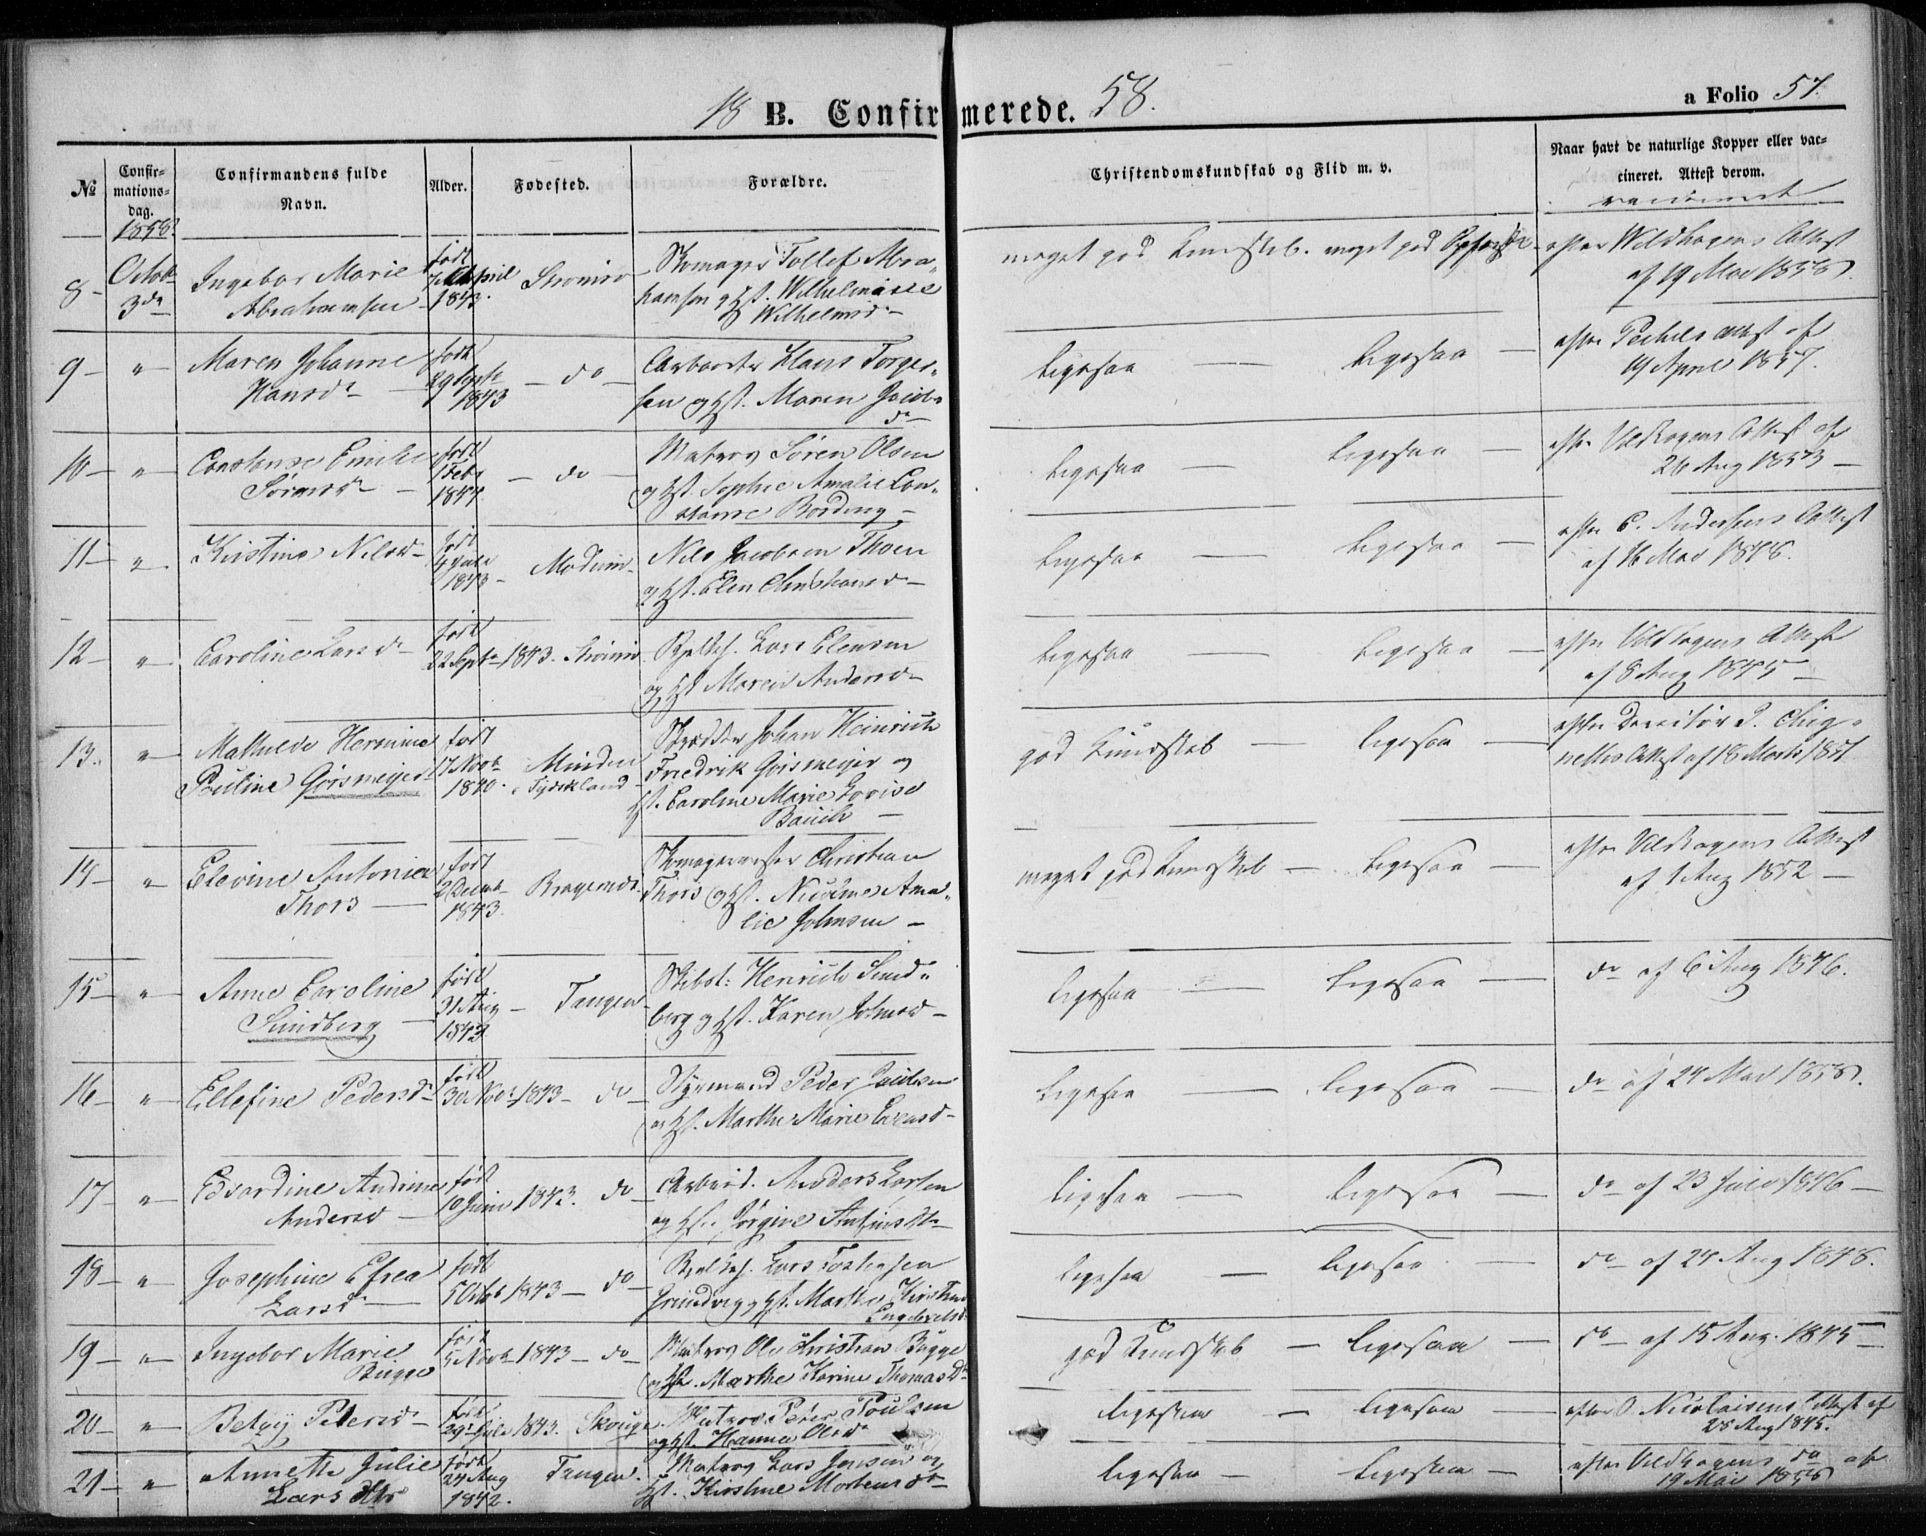 18 B. Confirmerede. 58.
a Folio 57.
№
Confir-
mations-
dag.
Confirmandens fulde
Navn.
Alder.
Fødested.
Forældre.
Christendomskundskab og Flid m. v.
Naar havt de naturlige Kopper eller vac-
cineret. Attest derom.
1858
vaccineret
8 - Octob 3de Ingebor Marie Abrahamsen født 7 April 1843. Strømsø Skomager Tollef Abra-
hamsen og Hst. Wilhelmine Wilhelmsd -
meget god Kundskab. meget god Opførsel - efter Wildhagens Attest
af 19 Mai 1858.
9 - " - Maren Johanne Hansd - født 29 Septb 1843 - do - Arbeider Hans Torger-
sen og Hst. Maren Jacobsd
ligesaa - ligesaa - efter Pechels Attest af
19 April 1857.
10 - " - Constanse Emilie Sørensd - født 1 Feb 1844 - do - Matros Søren Olsen
og Hst. Sophie Amalie Con-
stance Bording -
ligesaa - ligesaa - efter Vildhagens Attest af
26 Aug 1853 -
11 - " - Kristine Nilsd - født 1843 - Modum - Nils Jacobsen Thoen
og Hst. Elen Christiansd -
ligesaa - ligesaa - efter C. Andersens Attest
af 16 Mai 1848.
12 - " - Caroline Larsd - født 22 Septb 1843. Strømsø Lars Elensen
og Hst Maren Andersd -
ligesaa - ligesaa - efter Vildhagens Attest
af 8 Aug 1845 -
13. " Mathilde Hermine Pauline Görsmeyer født 17 Novb 1840. Minden i Tydskland - Skrædder Johan Heinrich
Friedrik Görsmeyer og
Hst. Caroline Marie Lovise
Bauch -
god Kundskab - ligesaa - efter P. Chig-
nettes Attest af 18 Marts 1851
14 - " Elevine Antonie Thors - født 2 Decemb 1843. Bragernes. Skomagermester Christian
Thors og Hst. Nicoline Ama-
lie Johnsen -
meget god Kundskab - ligesaa - efter Vildhagens Attest
af 1 Aug 1852 -
15 - " - Anne Caroline Sundberg - født 21 Aug 1843 - Tangen - Skibst: Henrich Sund-
berg og Hst. Karen Johnsd -
ligesaa - ligesaa - do af 6 Aug 1846.
16 - " - Ellefine Pedersd - født 30 Nov 1843 - do - Styrmand Peder Jacobsen
og Hst. Marthe Marie Evensd -
ligesaa - ligesaa - do af 24 Mai 1858.
17 - " - Edvardine Andrine Andersd - født 10 Juni 1843. do - Arbeid. Anders Larsen
og Hst. Jørgine
ligesaa - ligesaa - do af 23 Juli 1846 -
18 - " - Josephine Efrea Larsd - født 5 Octob 1843 - do - Lars Tostensen
Grundvig og Hst. Marthe Kirstine
Engebretsd
ligesaa - ligesaa - do af 24 Aug 1848.
19 - " - Ingebor Marie Bugge født 5 Novb 1843 - do - Matros Ole Christian Bugge
og Hst. Marthe Karine Thomasd
god Kundskab - ligesaa - do - af 15 Aug. 1845 -
20 - " - Betsy Petersd - født 29 Juli 1843. Skouge Matros Peter Poulsen
og Hst. Hanna Olsd
ligesaa - ligesaa - efter O. Nicolaisens Attest af
28 Aug 1845.
21 - " - Annette Julie Larsdtr født 24 Aug 1842. Tangen. Matros Lars Jensen og
Hst. Kirstine Mortensd -
ligesaa - ligesaa - efter Vildhagens do af
19 Mai 1858